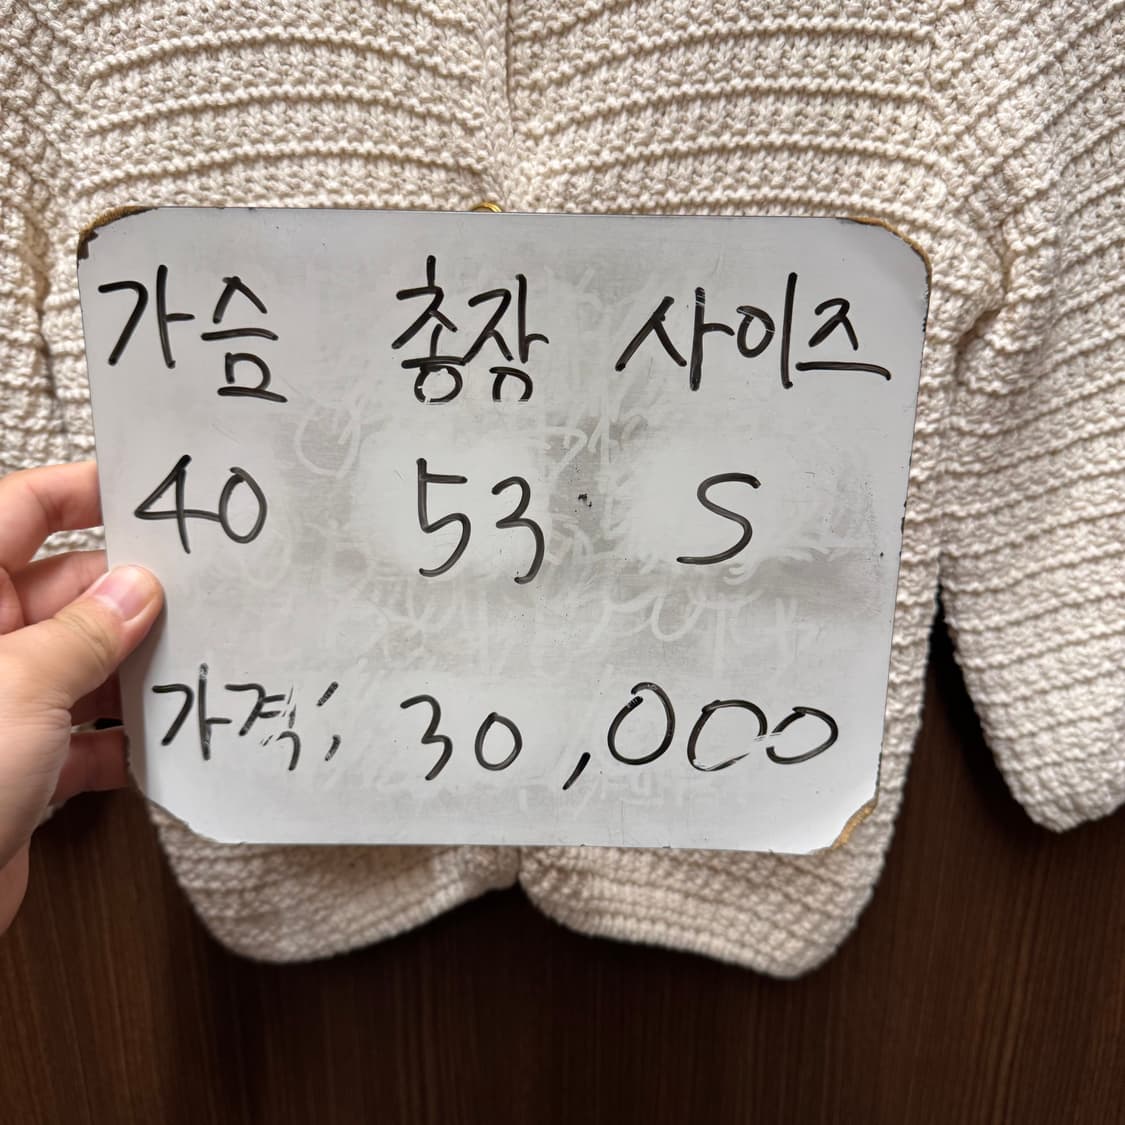 가슴 총장 사이즈
40 53 S
가격; 30,000